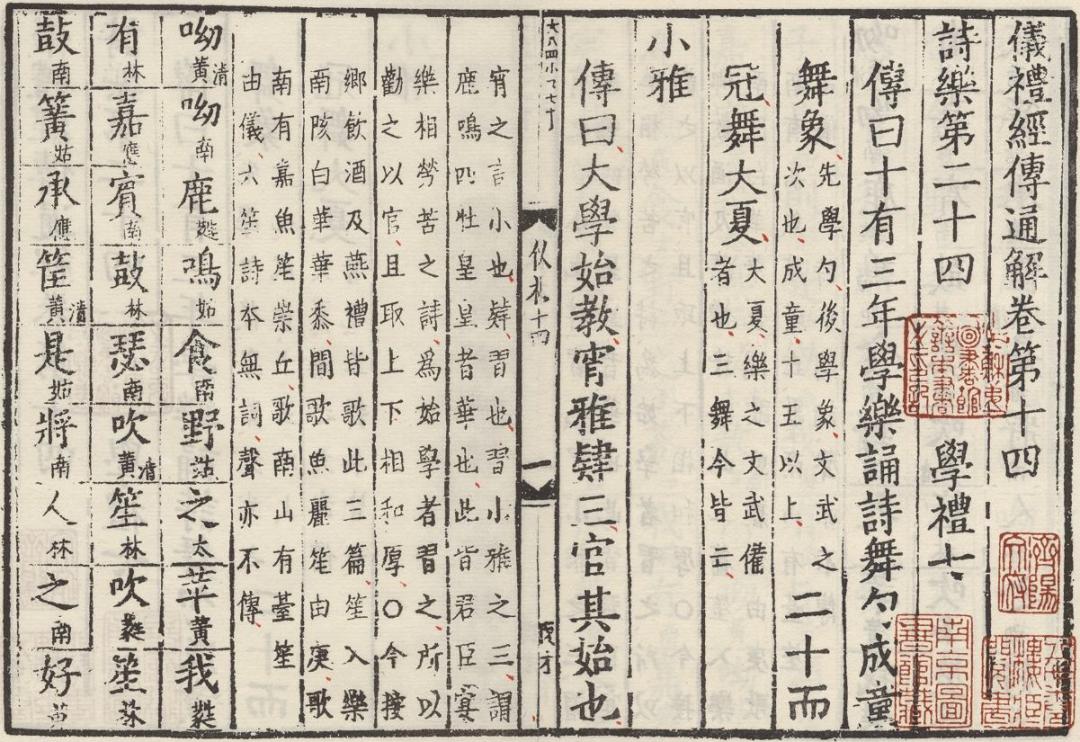 儀禮經傳通解卷第十四
詩樂第二十四 學禮七
傳曰十有三年學樂誦詩舞勺成童
舞象、先學勺後學象、文武之次也、成童十五以上、二十而
冠舞大夏、大夏、樂之文武備者也、三舞今皆亡、
小雅
傳曰、大學始教、宵雅肄三、官其始也、
宵之言小也、肄習也、習小雅之三、謂
鹿鳴四牡皇皇者華也、此皆君臣宴
樂相勞苦之詩、爲始學者習之、所以
勸之以官、且取上下相和厚、○今按
鄉飲酒及燕禮皆歌此三篇、笙入、樂
南陔白華華黍、間歌魚麗、笙由庚、歌
南有嘉魚、笙崇丘、歌南山有臺、笙
由儀、六笙詩本無詞、聲亦不傳、
仪礼十四
一
呦黃清呦南鹿蕤鳴姑食南野姑之太苹黃我蕤
有林嘉應賓南鼓林瑟南吹黃清笙林吹蕤笙林
鼓南簧姑承應筐黃清是姑將南人林之南好黃
南京圖書館藏